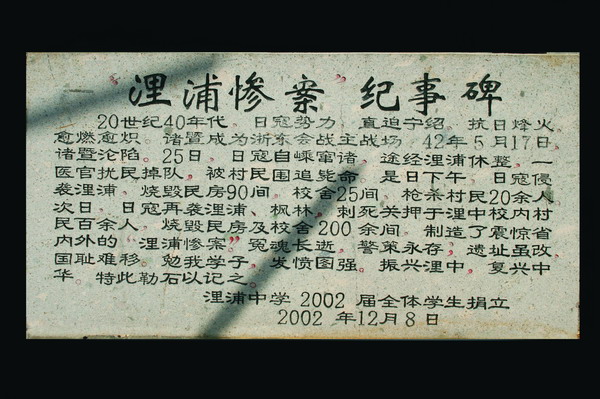 浬浦惨案”纪事碑
20世纪40年代，日寇势力，直迫宁绍，抗日烽火，
愈燃愈炽。诸暨成为浙东会战主战场，42年5月17日，
诸暨沦陷。25日，日寇自嵊窜诸，途经浬浦休整，一
医官扰民掉队，被村民围追毙命，是日下午，日寇侵
袭浬浦，烧毁民房90间，校舍25间，枪杀村民20余人，
次日，日寇再袭浬浦、枫林，刺死关押于浬中校内村
民百余人，烧毁民房及校舍200余间，制造了震惊省
内外的“浬浦惨案”。冤魂长逝，警策永存，遗址虽改，
国耻难移。勉我学子，发愤图强。振兴浬中，复兴中
华。特此勒石以记之。
浬浦中学 2002 届全体学生捐立
2002 年12月8日